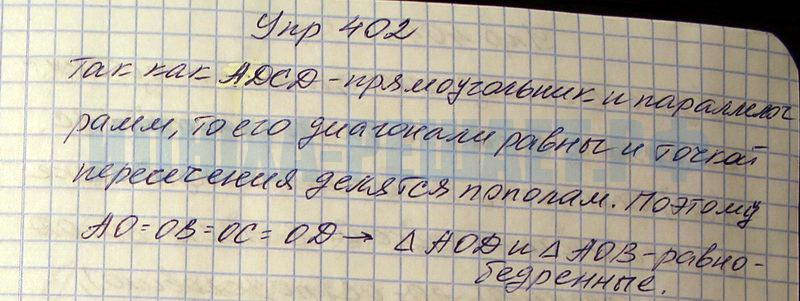 Упр 402
Так как ADCD - прямоугольник и параллелог
рамм, то его диагонали равны и точкой
пересечения делятся пополам. Поэтому
AO = OB = OC = OD → △ AOD и △ AOB - равно-
бедренные.